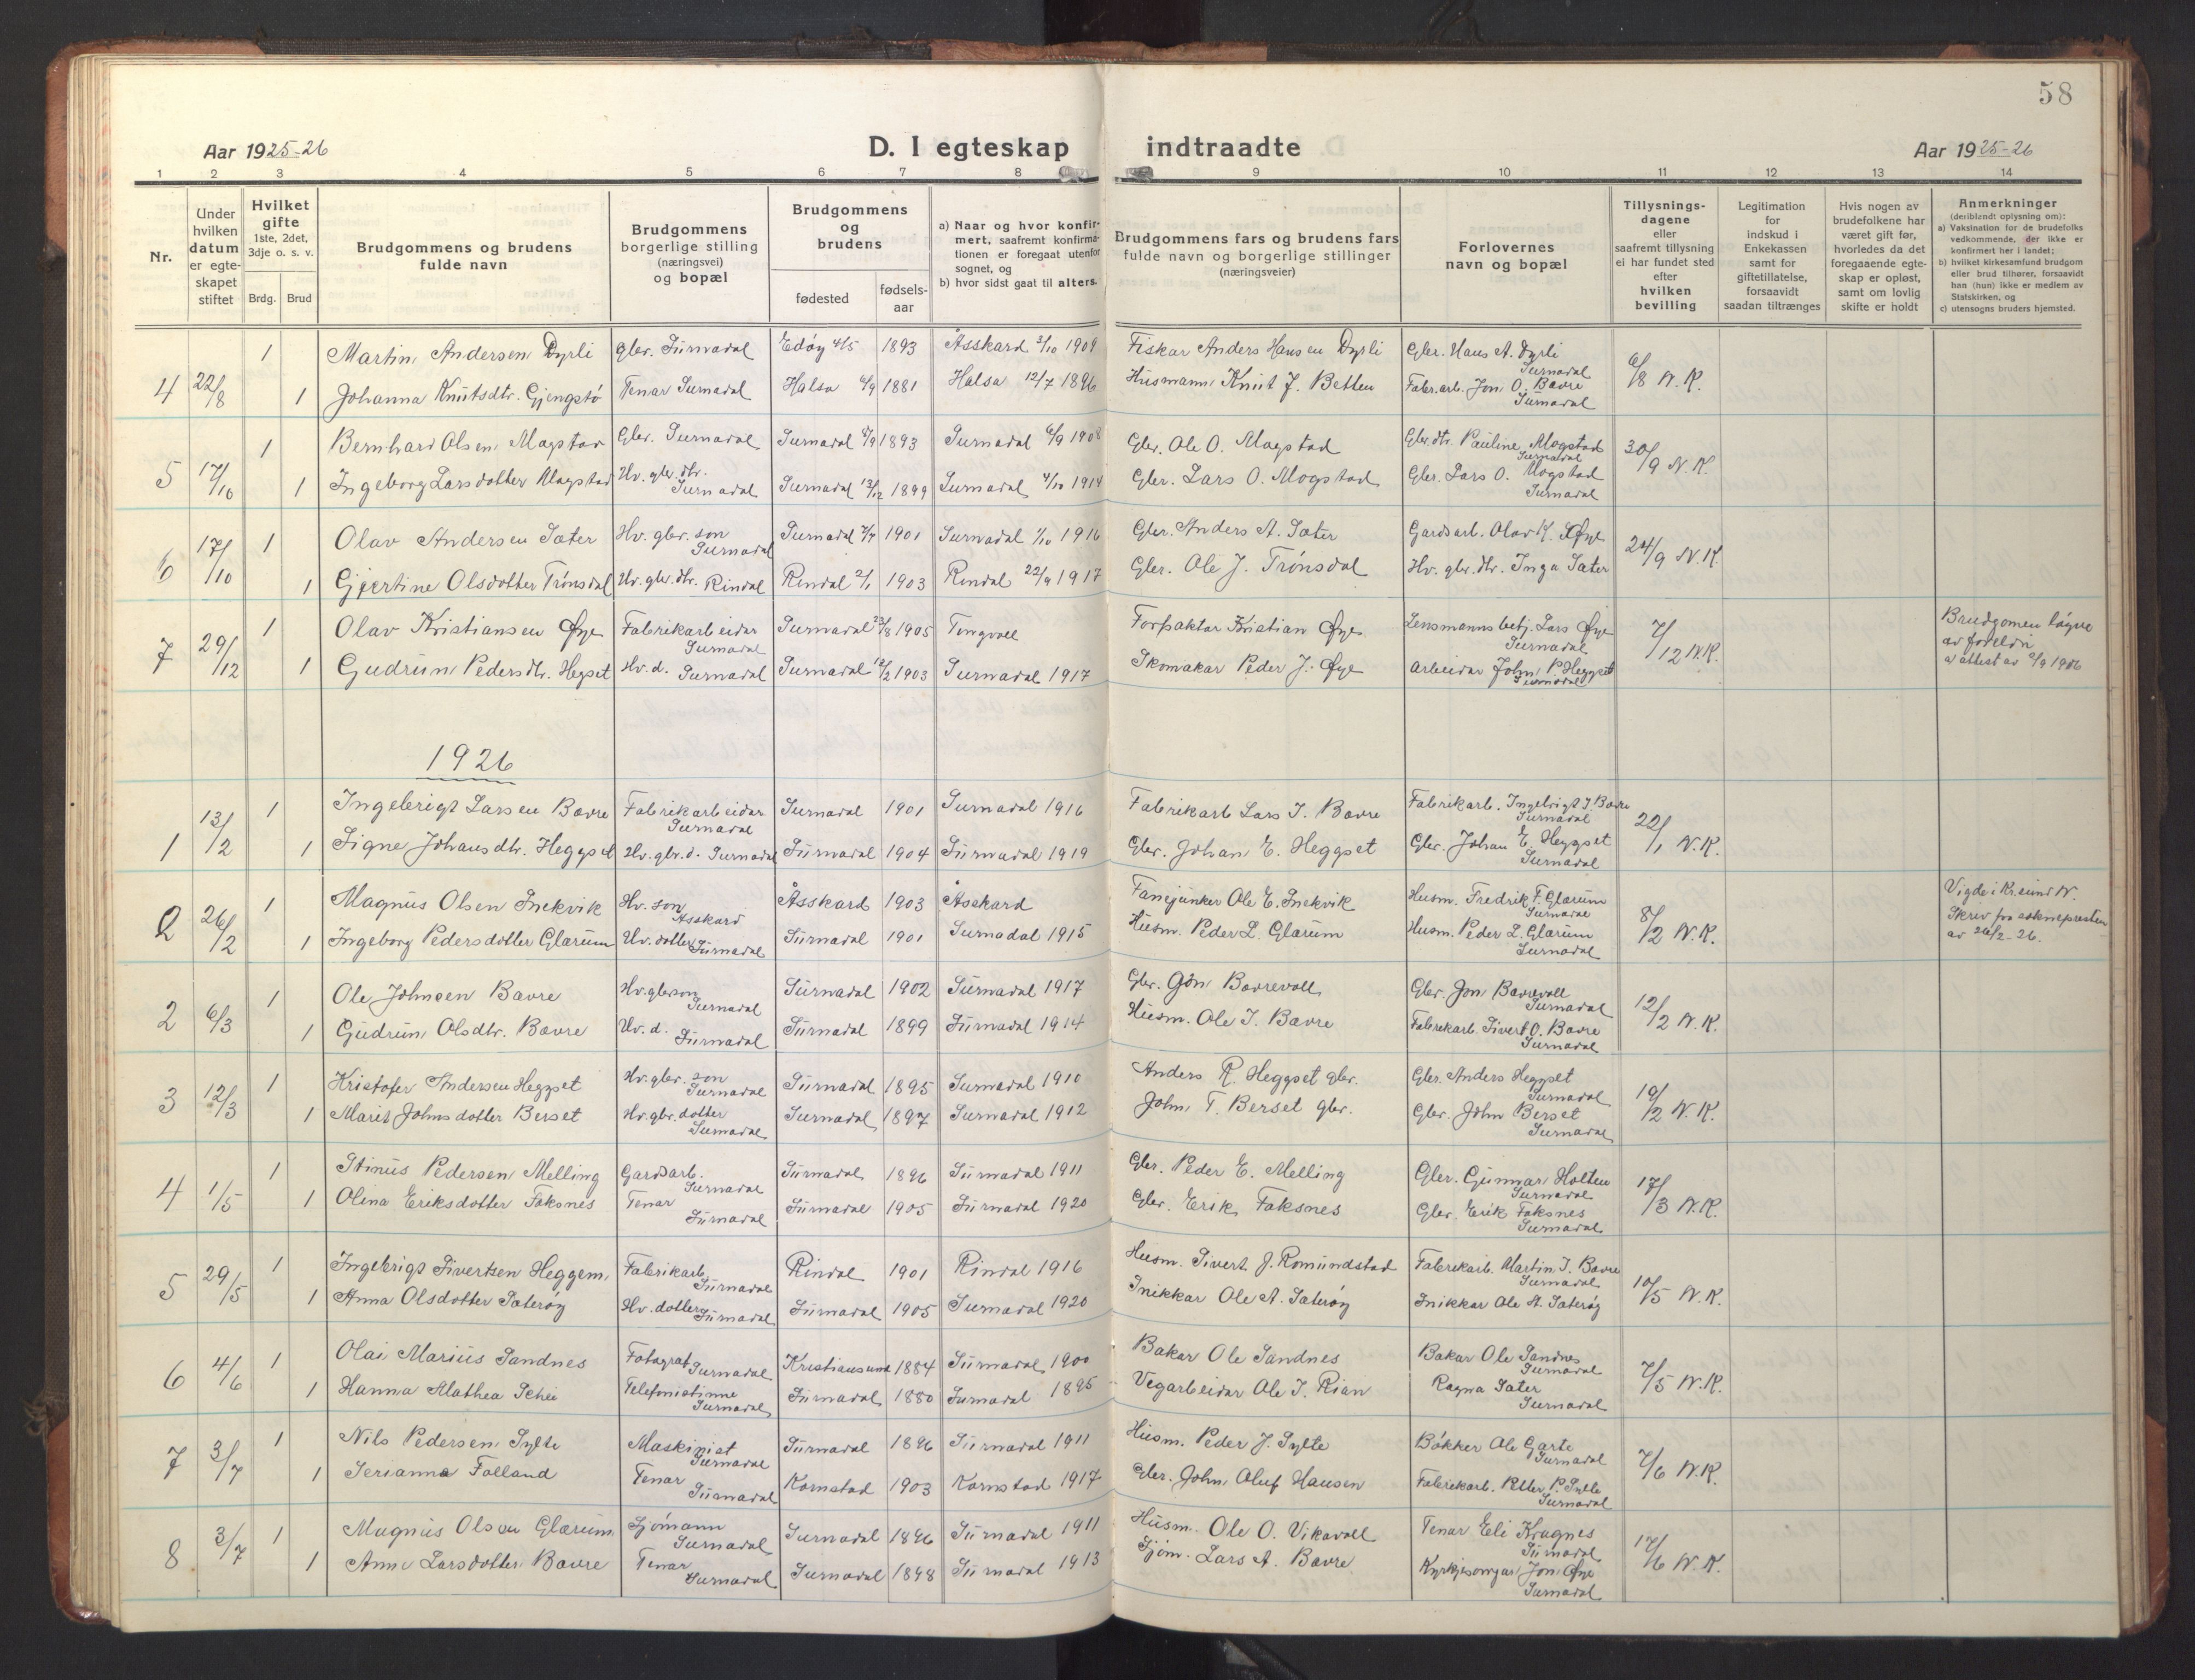 58
Aar 1925-26
D. I egteskap indtraadte
Aar 1925-26
1 2 3 4 5 6 7 8 9 10 11 12 13 14
Nr.
Under hvilken datum er egte-skapet stiftet
Hvilket gifte 1ste, 2det, 3dje o. s. v.
Brdg. Brud
Brudgommens og brudens fulde navn
Brudgommens borgerlige stilling (næringsvei) og bopæl
Brudgommens og brudens
fødested
fødsels-aar
a) Naar og hvor konfir-mert, saafremt konfirma-tionen er foregaat utenfor sognet, og
b) hvor sidst gaat til alters.
Brudgommens fars og brudens fars fulde navn og borgerlige stillinger (næringsveier)
Forlovernes navn og bopæl
Tillysnings-dagene eller saafremt tillysning ei har fundet sted efter hvilken bevilling
Legitimation for indskud i Enkekassen samt for giftetillatelse, forsaavidt saadan tiltrænges
Hvis nogen av brudefolkene har været gift før, hvorledes da det foregaaende egte-skap er opløst, samt om lovlig skifte er holdt
Anmerkninger (deriblandt oplysning om):
a) Vaksination for de brudefolks vedkommende, der ikke er konfirmert her i landet;
b) hvilket kirkesamfund brudgom eller brud tilhører, forsaavidt han (hun) ikke er medlem av Statskirken, og
c) utensogns bruders hjemsted.
4 22/8 1 Martin Andersen Dyrli Gbr. Surnadal Edøy 4/5 1893 Åsskard 3/10 1909 Fiskar Anders Hansen Dyrli Gbr. Hans A. Dyrli Surnadal 6/8 N.K.
1 Johanna Knutsdtr. Gjengstø Tenar Surnadal Halsa 1881 Halsa 12/7 1896 Husmann Knut J. Betten Fabr.arb. Jon O. Bævre Surnadal
5 17/10 1 Bernhard Olsen Mogstad Gbr. Surnadal Surnadal 1893 Surnadal 1908 Gbr. Ole O. Mogstad Gbr.dtr. Pauline Mogstad Surnadal 30/9 N.K.
1 Ingeborg Larsdotter Mogstad Hv. gbr. dtr. Surnadal Surnadal 13/12 1899 Surnadal 4/10 1914 Gbr. Lars O. Mogstad Gbr. Lars O. Mogstad Surnadal
6 17/10 1 Olav Andersen Sæter Hv. gbr. son Surnadal Surnadal 1901 Surnadal 1/10 1916 Gbr. Anders A. Sæter Gardsarb. Olav K. Øye 24/9 N.K.
1 Gjertine Olsdotter Trønsdal Hv. gbr. dtr. Rindal Rindal 2/1 1903 Rindal 22/9 1917 Gbr. Ole J. Trønsdal Hv. gbr. dtr. Inga Sæter
7 29/12 1 Olav Kristiansen Øye Fabrikarbeidar Surnadal Surnadal 23/8 1905 Tingvoll Forpaktar Kristian Øye Lensmannsbetj. Lars Øye Surnadal 7/12 N.K. Brudgomen løyve av foreldri
1 Gudrun Pedersdtr. Hegset Hv. d. Surnadal Surnadal 12/2 1903 Surnadal 1917 Skomakar Peder J. Øye Arbeidar John P. Heggset Surnadal a) attest av 2/9 1906
1926
1 13/2 1 Ingebrigt Larsen Bævre Fabrikarbeidar Surnadal Surnadal 1901 Surnadal 1916 Fabrikarb. Lars I. Bævre Fabrikarb. Ingebrigt J. Bævre Surnadal 22/1 N.K.
1 Signe Johansdtr. Heggset Hv. gbr. d. Surnadal Surnadal 1904 Surnadal 1919 Gbr. Johan E. Heggset Gbr. Johan E. Heggset Surnadal
2 26/2 1 Magnus Olsen Snekvik Hv. son Åsskard Åsskard 1903 Åsskard Fanejunker Ole E. Snekvik Husm. Fredrik F. Glærum Surnadal 8/2 N.K. Vigde i Kr.sund N.
1 Ingeborg Pedersdotter Glærum Hv. dotter Surnadal Surnadal 1901 Surnadal 1915 Husm. Peder L. Glærum Husm. Peder L. Glærum Surnadal Skriv fra soknepresten av 26/2-26.
2 6/3 1 Ole Johnsen Bævre Hv. gbrson Surnadal Surnadal 1902 Surnadal 1917 Gbr. Jon Bævrevoll Gbr. Jon Bævrevoll Surnadal 12/2 N.K.
1 Gudrun Olsdtr. Bævre Hv. d. Surnadal Surnadal 1899 Surnadal 1914 Husm. Ole I. Bævre Fabrikarb. Sivert O. Bævre Surnadal
3 12/3 1 Kristofer Andersen Heggset Hv. gbr. son Surnadal Surnadal 1895 Surnadal 1910 Anders R. Heggset gbr. Gbr. Anders Heggset Surnadal 19/2 N.K.
1 Marit Johnsdotter Berset Hv. gbr. dotter Surnadal Surnadal 1897 Surnadal 1912 John T. Berset gbr. Gbr. John Berset Surnadal
4 1/5 1 Stinus Pedersen Melling Gardsarb. Surnadal Surnadal 1896 Surnadal 1911 Gbr. Peder E. Melling Gbr. Gunnar Holten Surnadal 17/3 N.K.
1 Olina Eriksdotter Faksnes Tenar Surnadal Surnadal 1905 Surnadal 1920 Gbr. Erik Faksnes Gbr. Erik Faksnes Surnadal
5 29/5 1 Ingebrigt Sivertsen Heggem Fabrikarb. Surnadal Rindal 1901 Rindal 1916 Husm. Sivert J. Romundstad Fabrikarb. Martin J. Bævre Surnadal 10/5 N.K.
1 Anna Olsdotter Sæterøy Hv. dotter Surnadal Surnadal 1905 Surnadal 1920 Snikkar Ole A. Sæterøy Snikkar Ole A. Sæterøy
6 4/6 1 Olai Marius Sandnes Fotograf Surnadal Kristiansund 1884 Surnadal 1900 Bakar Ole Sandnes Bakar Ole Sandnes Surnadal 7/5 N.K.
1 Hanna Alathea Schei Telefonistinne Surnadal Surnadal 1880 Surnadal 1895 Vegarbeidar Ole J. Rian Ragna Sæter Surnadal
7 3/7 1 Nils Pedersen Sylte Maskinist Surnadal Surnadal 1896 Surnadal 1911 Husm. Peder J. Sylte Bøkker Ole Garte Surnadal 7/6 N.K.
1 Serianna Folland Tenar Surnadal Kornstad 1903 Kornstad 1917 Gbr. John Oluf Hansen Fabrikarb. Petter P. Sylte Surnadal
8 3/7 1 Magnus Olsen Glærum Sjømann Surnadal Surnadal 1896 Surnadal 1911 Husm. Ole O. Vikavoll Tenar Eli Kragnes Surnadal 17/6 N.K.
1 Anne Larsdotter Bævre Tenar Surnadal Surnadal 1898 Surnadal 1913 Sjøm. Lars A. Bævre Kyrkjesongar Jon Øye Surnadal